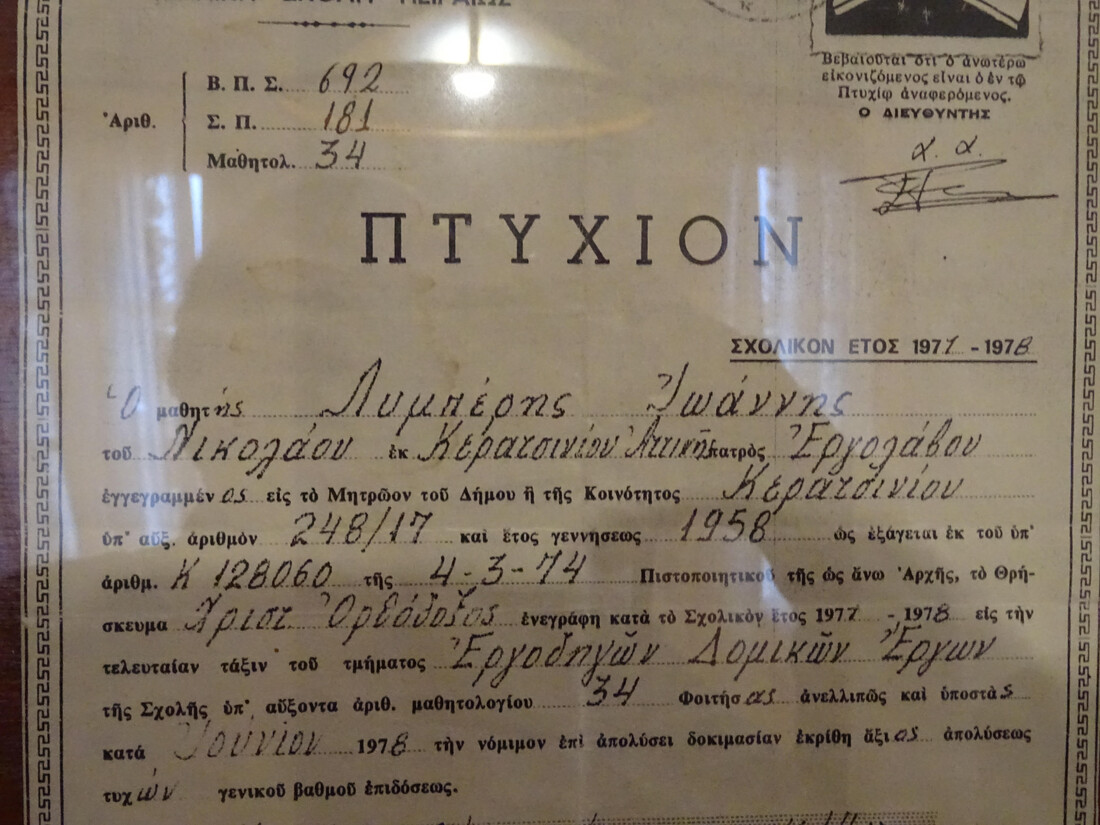 ΠΕΙΡΑΙΩΣ
Β. Π. Σ. 692
Ἀριθ. Σ. Π. 181
Μαθητολ. 34
Βεβαιοῦται ὅτι ὁ ἀνωτέρω
εἰκονιζόμενος εἶναι ὁ ἐν τῷ
Πτυχίῳ ἀναφερόμενος.
Ο ΔΙΕΥΘΥΝΤΗΣ
α. α.
ΠΤΥΧΙΟΝ
ΣΧΟΛΙΚΟΝ ΕΤΟΣ 1977 - 1978
Ὁ μαθητής Λυμπέρης Ἰωάννης
τοῦ Νικολάου ἐκ Κερατσινίου Ἀττικῆς πατρὸς Ἐργολάβου
ἐγγεγραμμένος εἰς τὸ Μητρῶον τοῦ Δήμου ἢ τῆς Κοινότητος Κερατσινίου
ὑπ' αὔξ. ἀριθμὸν 248/17 καὶ ἔτος γεννήσεως 1958 ὡς ἐξάγεται ἐκ τοῦ ὑπ'
ἀριθμ. Κ 128060 τῆς 4-3-74 Πιστοποιητικοῦ τῆς ὡς ἄνω Ἀρχῆς, τὸ Θρή-
σκευμα Χριστ Ὀρθόδοξος ἐνεγράφη κατὰ τὸ Σχολικὸν ἔτος 1977 - 1978 εἰς τὴν
τελευταίαν τάξιν τοῦ τμήματος Ἐργοδηγῶν Δομικῶν Ἔργων
τῆς Σχολῆς ὑπ' αὔξοντα ἀριθ. μαθητολογίου 34 Φοιτήσας ἀνελλιπῶς καὶ ὑποστὰς
κατά Ἰούνιον 1978 τὴν νόμιμον ἐπὶ ἀπολύσει δοκιμασίαν ἐκρίθη ἄξιος ἀπολύσεως
τυχών γενικοῦ βαθμοῦ ἐπιδόσεως.